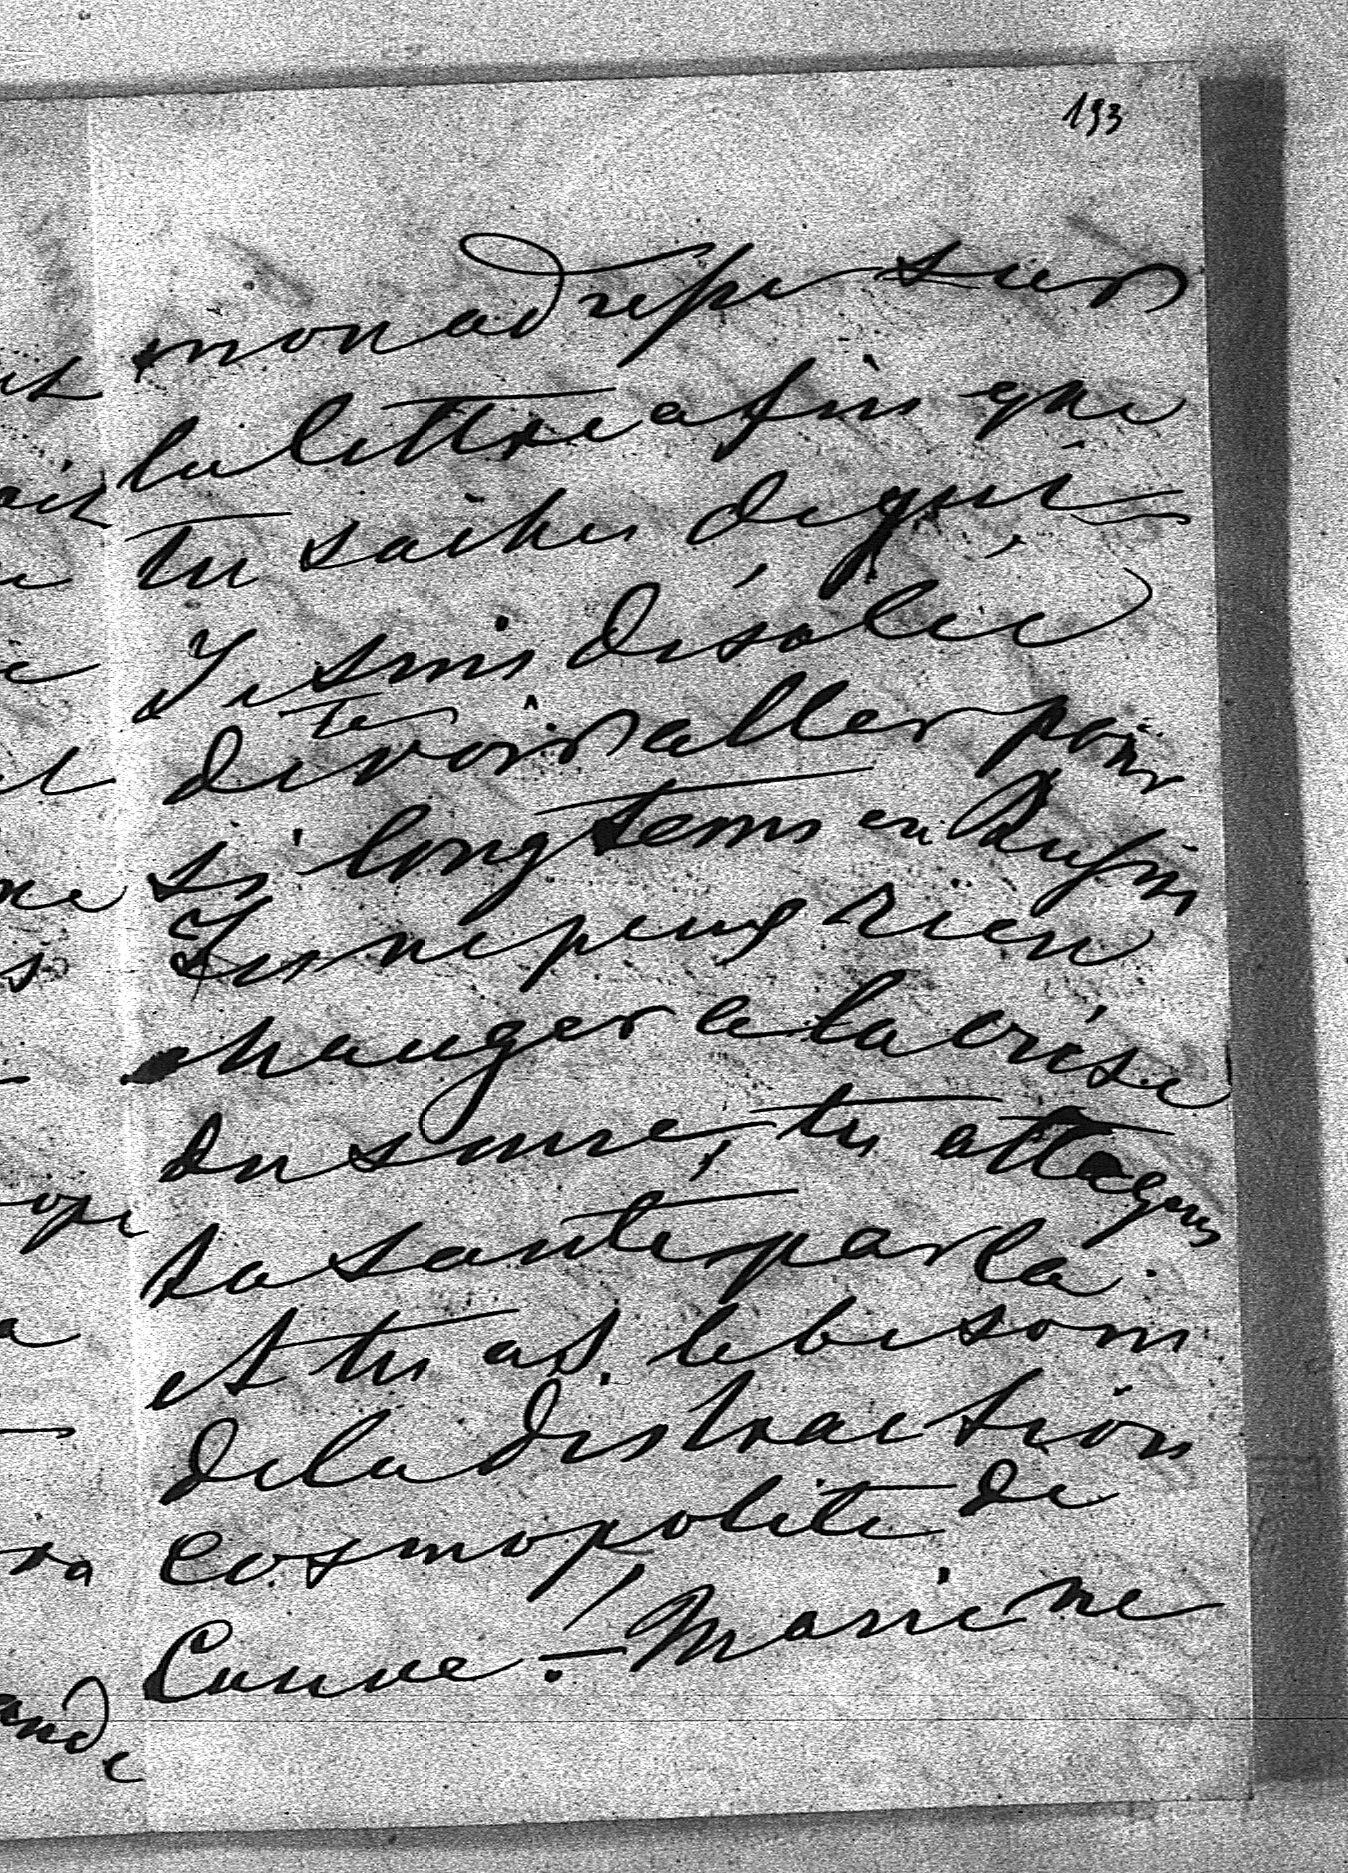 193
mon adresse sur
la lettre afin que
tu saches de qui
Je suis désolée
de te voir aller pour
si longtems en Russie
Tu ne peux rien
changer a la crise
du sucre, tu attaques
ta santé par la
et tu as le besoin
de la distraction
cosmopolite de
Marie ne